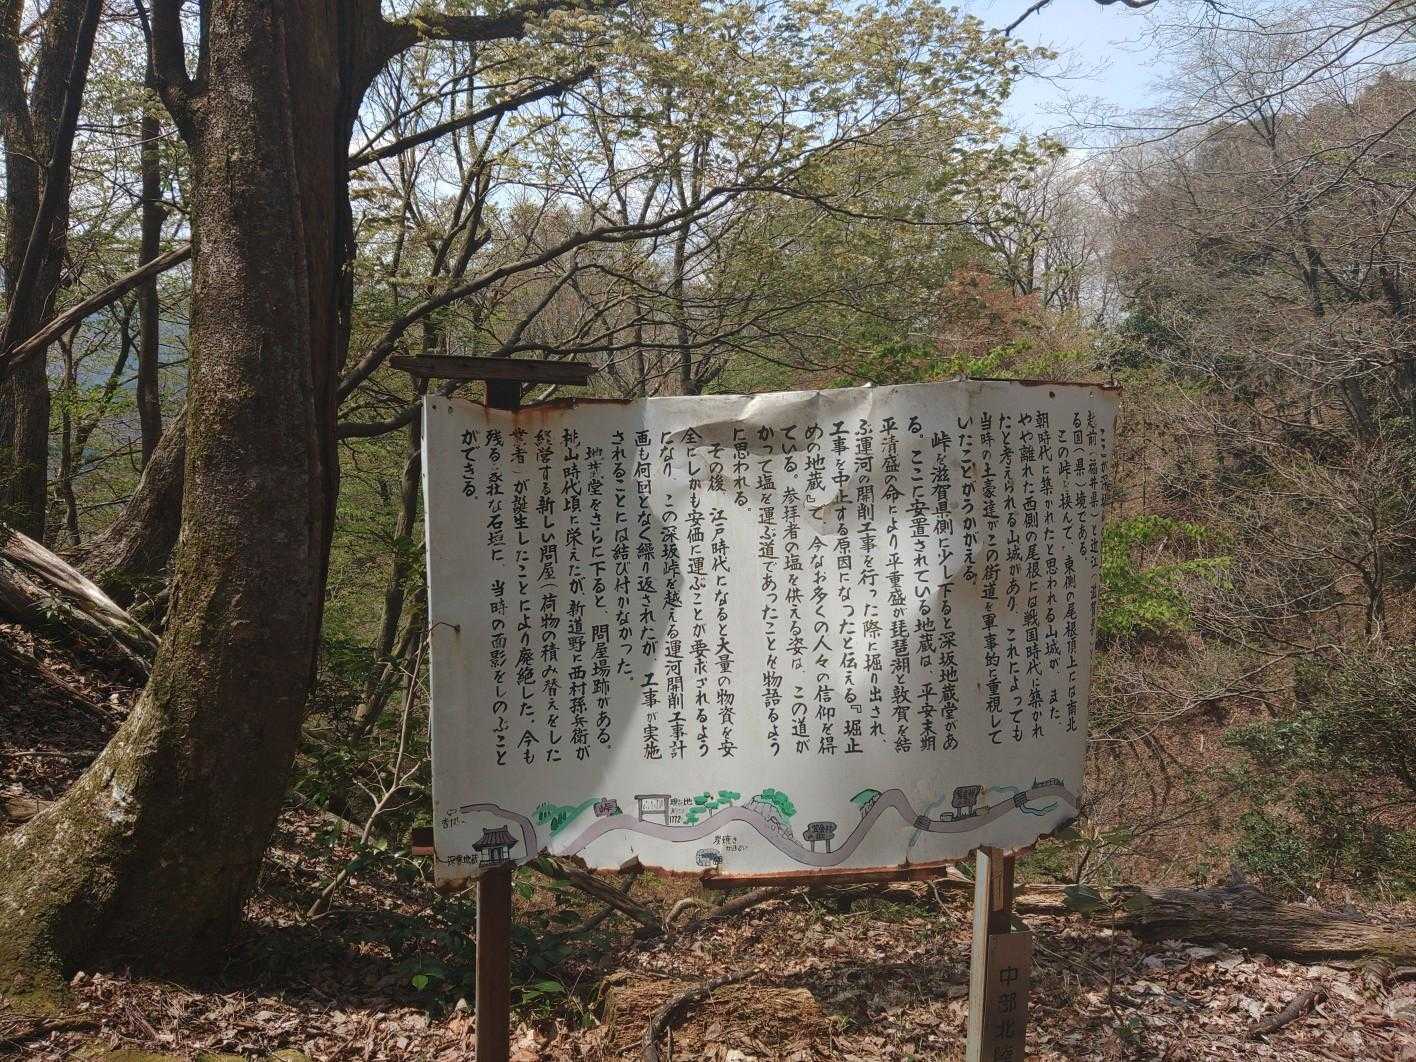 ここが深坂
越前（福井県）と近江（滋賀
る国（県）境である。
この峠を挟んで、東側の尾根頂上には南北
朝時代に築かれたと思われる山城が、また、
やや離れた西側の尾根には戦国時代に築かれ
たと考えられる山城があり、これによっても
当時の土豪達がこの街道を軍事的に重視して
いたことがうかがえる。
峠を滋賀県側に少し下ると深坂地蔵堂があ
る。ここに安置されている地蔵は、平安末期
平清盛の命により平重盛が琵琶湖と敦賀を結
ぶ運河の開削工事を行った際に掘り出され、
工事を中止する原因になったと伝える『堀止
めの地蔵』で、今なお多くの人々の信仰を得
ている。参拝者の塩を供える姿は、この道が
かつて塩を運ぶ道であったことを物語るよう
に思われる。
その後、江戸時代になると大量の物資を安
全にしかも安価に運ぶことが要求されるよう
になり、この深坂峠を越える運河開削工事計
画も何回となく繰り返されたが、工事が実施
されることには結び付かなかった。
地蔵堂をさらに下ると、問屋場跡がある。
桃山時代頃に栄えたが、新道野に西村孫兵衛が
経営する新しい問屋（荷物の積み替えをした
業者）が誕生したことにより廃絶した。今も
残る荘壮な石垣に、当時の面影をしのぶこと
ができる。
深坂地蔵
現在地
炭焼き
中部北陸